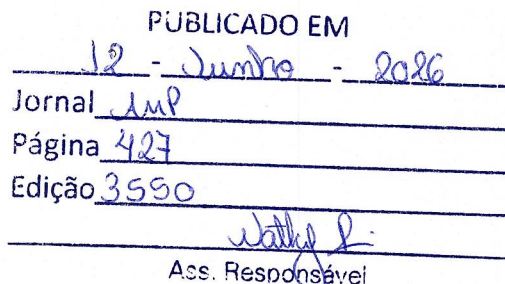 PUBLICADO EM
12 - Junho - 2026
Jornal AMP
Página 427
Edição 3550
Ass. Responsável